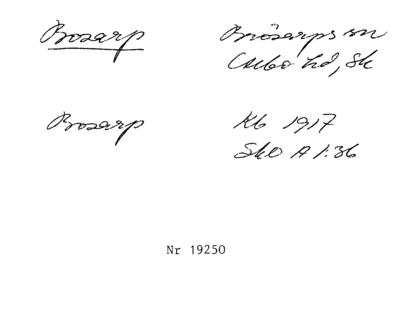 Bosarp Brösarps sn
Albo hd, Sk
Bosarp Kb 1917
SkO A 1:36
Nr 19250